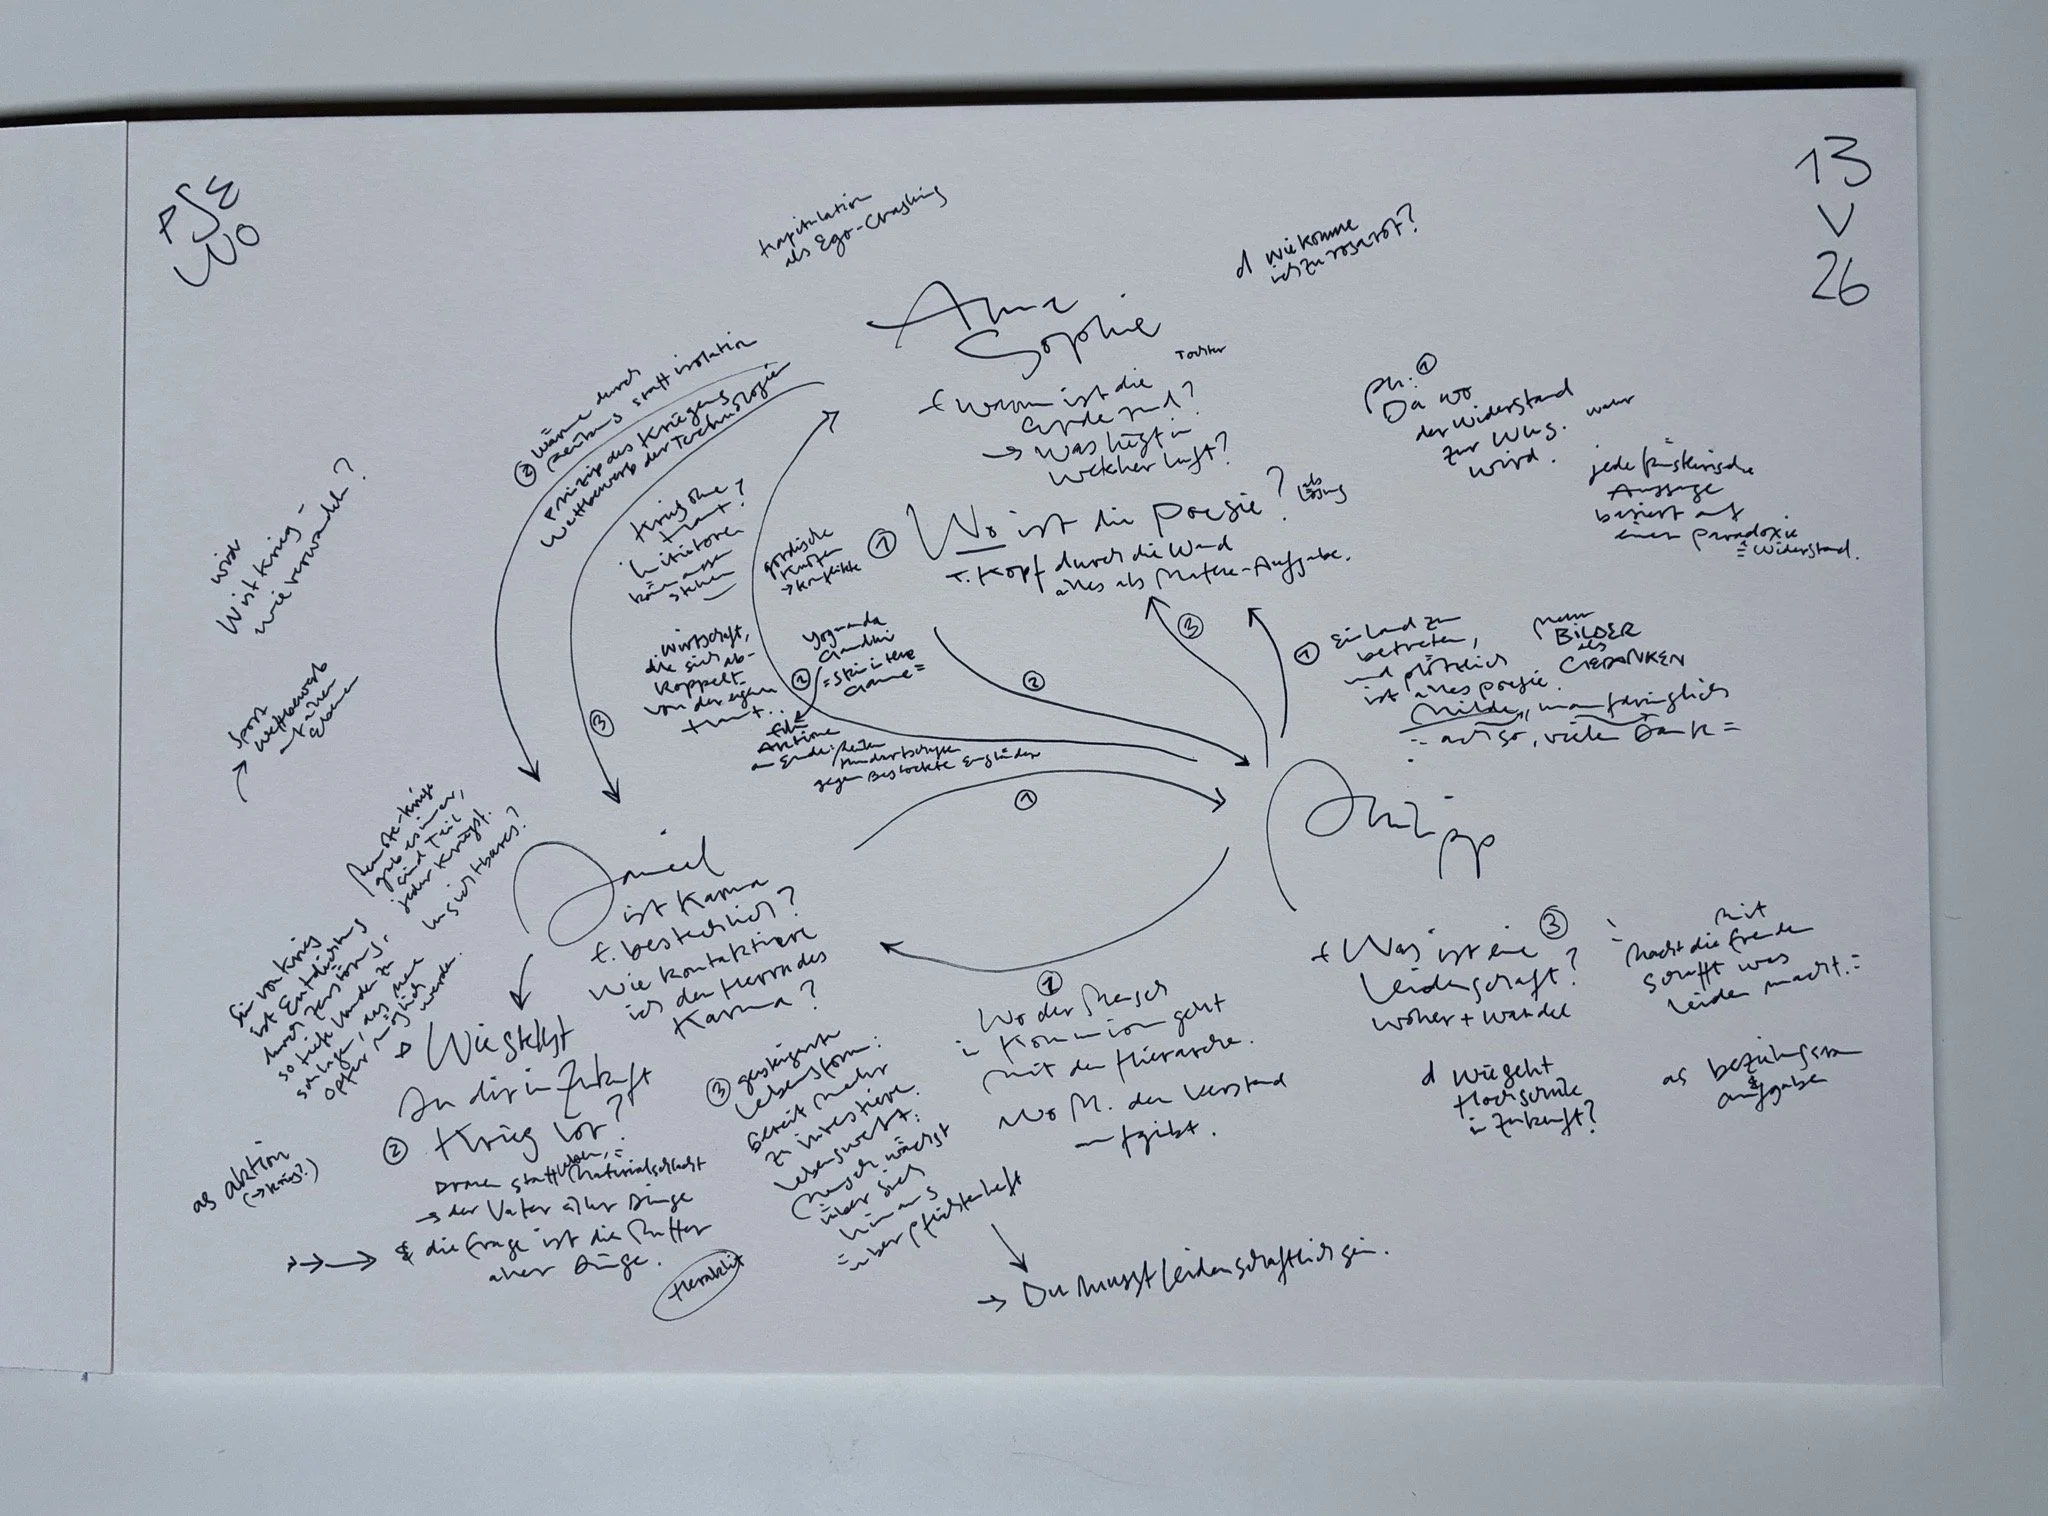 13
V
26
WO
Kapitulation
als Ego-Crashing
d wie komme
ich zu rosarot?
Anna
Sophie
Tochter
+ Warum ist die
Erde rund?
→ Was liegt in
welcher Luft?
① Wo ist die Poesie? als Lösung
T. Kopf durch die Wand
alles als Mathe-Aufgabe.
② Wärme durch
Reibung statt Isolation
Prinzip des Krieges
Wettbewerb der Technologien
Krieg ohne
Haut?
Initiatoren
außen
stehen
gordische
Knoten
→ Konflikte
Wirtschaft,
die sich ab-
koppelt
von der eigenen
Haut...
②
Yogananda
Gandhi
Aktionen
gegen Engländer
Ph: ①
Da wo
der Widerstand
zur
wird.
jede künstlerische
Aussage
basiert auf
einer Paradoxie
= Widerstand.
① Ein Land zu
betreten,
und plötzlich
ist alles Poesie.
mehr
BILDER
als
GEDANKEN
Milde, unaufdringlich
= ach so, vielen Dank =
③
②
③
①
wird
Wist Krieg -
wie verwandelt?
Sport
Wettbewerb
Philipp
Daniel
ist Karma
t. bestechlich?
Wie kontaktiere
ich den Herrn des
Karma?
sind Teil
jeder Kriegst.
unsichtbares?
Sinn von Krieg
ist
durch Zerstörung,
so tiefe Wunden zu
schlagen, das neue
Opfer möglich
werden.
→ Wie stellst
Du dir in Zukunft
② Krieg vor?
Drohnen statt Leben, = Materialschlacht
→ der Vater aller Dinge
& die Frage ist die Mutter
aller Dinge.
Heraklit
as aktion
(→ Krieg?)
①
Wo der Mensch
in Kommunion geht
mit der Hierarchie.
Wo M. den Verstand
aufgibt.
③ gesteigerte
Lebensform:
bereit mehr
zu investieren.
Lebenswelt:
Mensch wächst
über sich
hinaus
→ Du musst leidenschaftlich sein.
+ Was ist eine ③
Leidenschaft?
woher + Wandel
= Mit
Macht die Freude
schafft was
Leiden macht. =
d Wie geht
Hochschule
in Zukunft?
as beziehungs
aufgaben